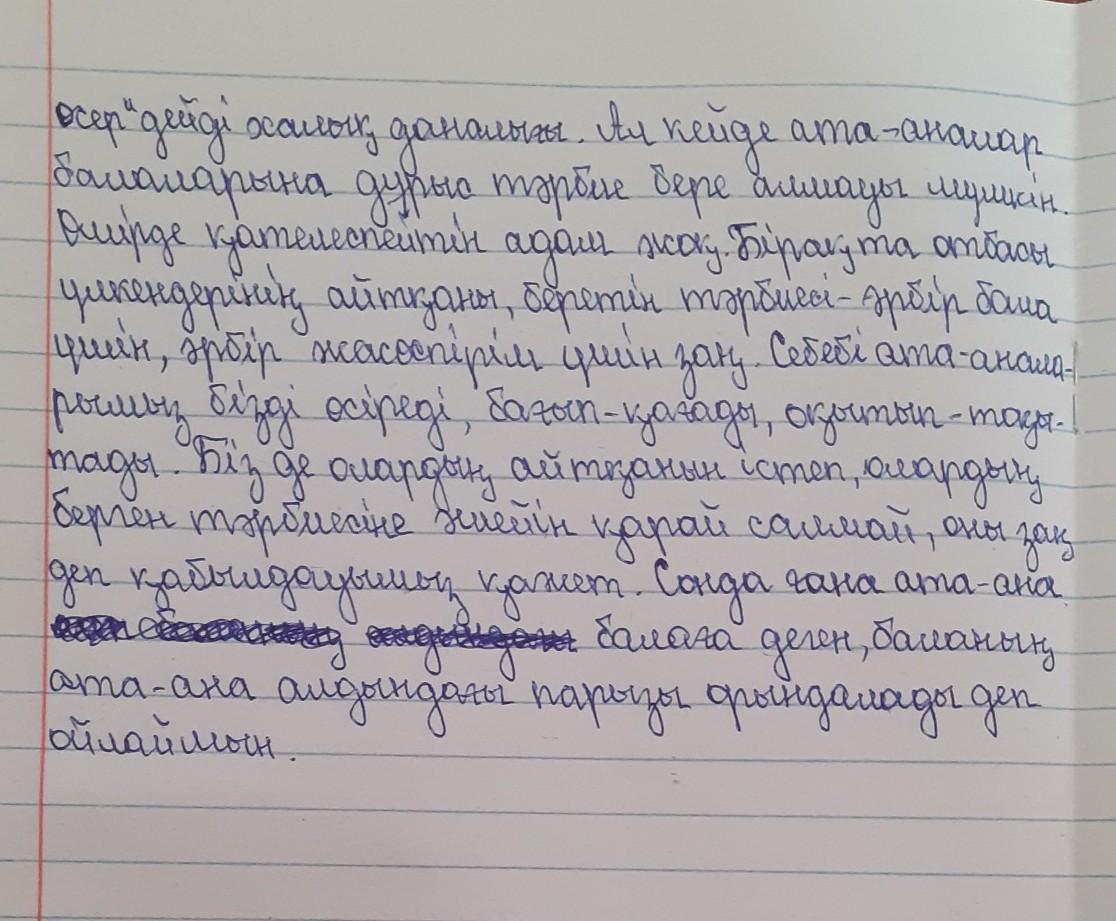 өсер" дейді халық даналығы. Ал кейде ата-аналар
балаларына дұрыс тәрбие бере алмауы мүмкін.
Өмірде қателеспейтін адам жоқ. Бірақ та отбасы
үлкендерінің айтқаны, беретін тәрбиесі - әрбір бала
үшін, әрбір жасөспірім үшін заң. Себебі ата-анала-
рымыз бізді өсіреді, бағып-қағады, оқытып-тоқы-
тады. Біз де олардың айтқанын істеп, олардың
берген тәрбиесіне әшейін қарай салмай, оны заң
деп қабылдауымыз қажет. Сонда ғана ата-ана
балаға деген, баланың
ата-ана алдындағы парызы орындалады деп
ойлаймын.